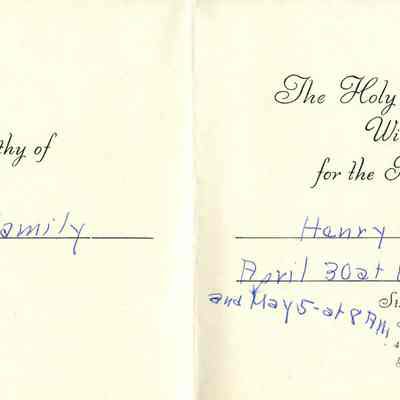 thy of
family
The Holy
Wi
for the
Henry
April 30 at
and May 5 - at 8 AM